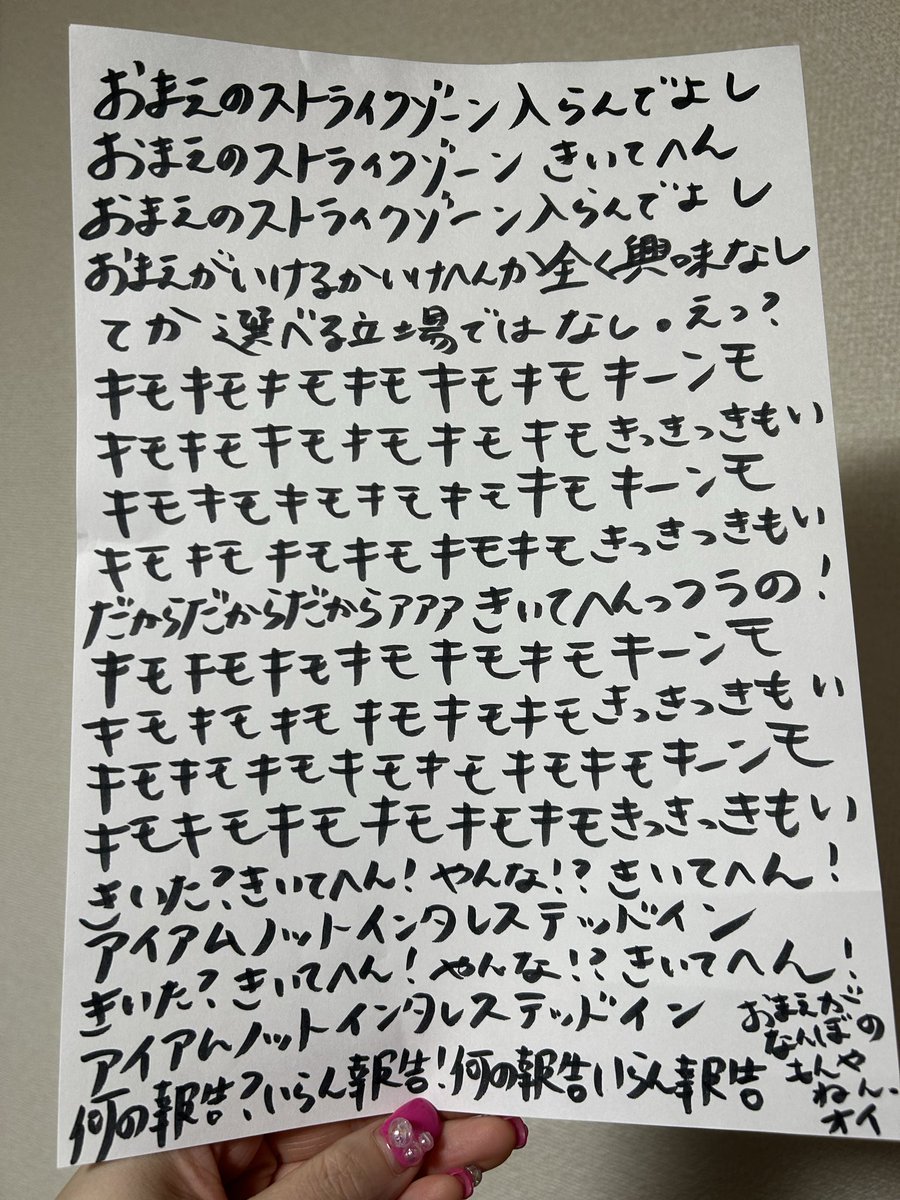 おまえのストライクゾーン入らんでよし
おまえのストライクゾーン きいてへん
おまえのストライクゾーン入らんでよし
おまえがいけるかいけへんか全く興味なし
てか選べる立場ではなし。えっ?
キモキモキモキモキモキモキーンモ
キモキモキモキモキモキモきっきっきもい
キモキモキモキモキモキモキーンモ
キモキモキモキモキモキモきっきっきもい
だからだからだからァァァきいてへんっつうの!
キモキモキモキモキモキモキーンモ
キモキモキモキモキモキモきっきっきもい
キモキモキモキモキモキモキモキーンモ
キモキモキモキモキモキモきっきっきもい
きいた?きいてへん!やんな!?きいてへん!
アイアムノットインタレステッドイン
きいた?きいてへん!やんな!?きいてへん!
アイアムノットインタレステッドイン
何の報告?いらん報告!何の報告いらん報告
おまえが
なんぼの
もんや
ねん.
オイ